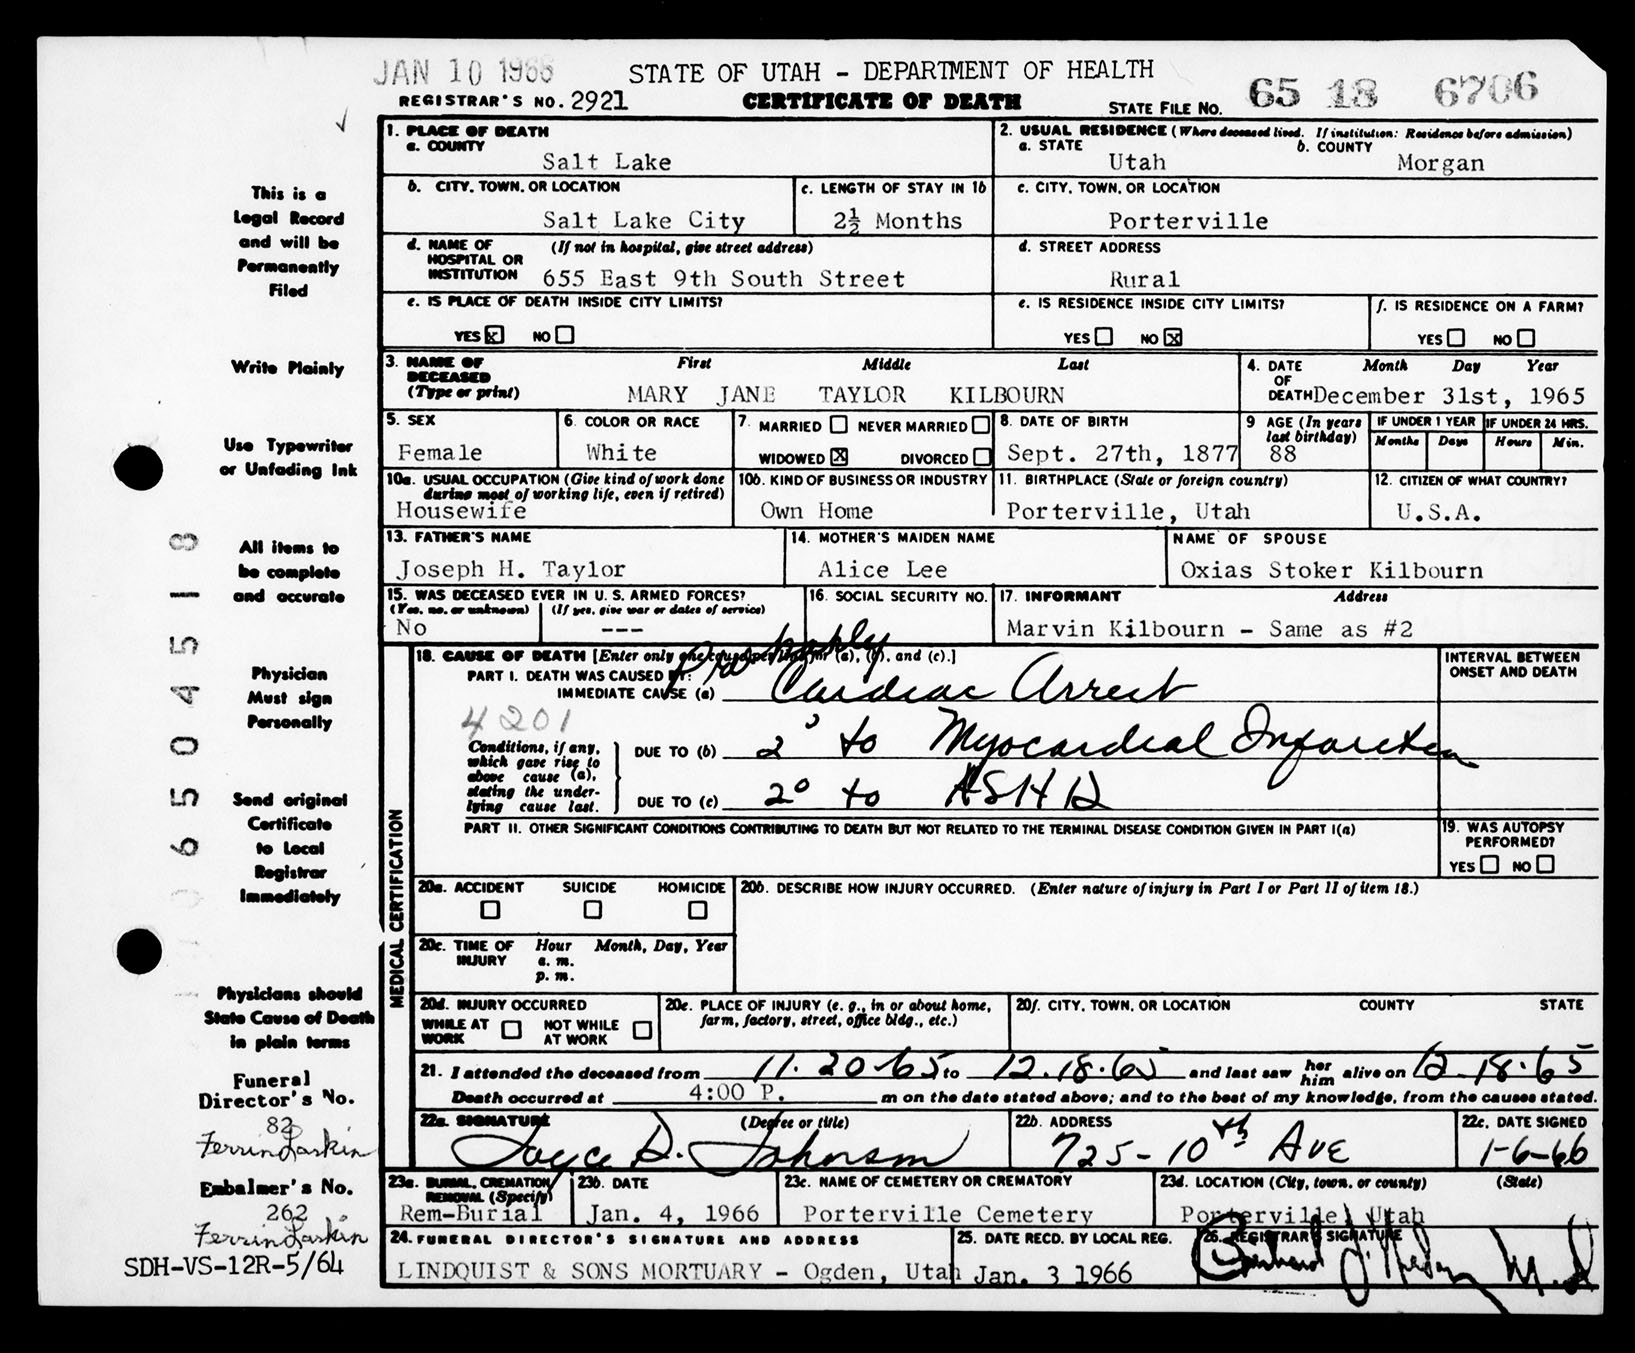 JAN 10 1966
STATE OF UTAH - DEPARTMENT OF HEALTH
REGISTRAR'S NO. 2921
CERTIFICATE OF DEATH
STATE FILE NO. 65 18 6706
This is a
Legal Record
and will be
Permanently
Filed
Write Plainly
Use Typewriter
or Unfading Ink
All items to
be complete
and accurate
Physician
Must sign
Personally
Send original
Certificate
to Local
Registrar
Immediately
Physicians should
State Cause of Death
in plain terms
Funeral
Director's No.
82
Ferrin Larkin
Embalmer's No.
262
Ferrin Larkin
SDH-VS-12R-5/64
1. PLACE OF DEATH
a. COUNTY
Salt Lake
2. USUAL RESIDENCE (Where deceased lived. If institution: Residence before admission)
a. STATE b. COUNTY
Utah Morgan
b. CITY, TOWN, OR LOCATION
Salt Lake City
c. LENGTH OF STAY IN 1b
2½ Months
c. CITY, TOWN, OR LOCATION
Porterville
d. NAME OF (If not in hospital, give street address)
HOSPITAL OR
INSTITUTION 655 East 9th South Street
d. STREET ADDRESS
Rural
e. IS PLACE OF DEATH INSIDE CITY LIMITS?
YES X NO
e. IS RESIDENCE INSIDE CITY LIMITS?
YES NO X
f. IS RESIDENCE ON A FARM?
YES NO
3. NAME OF First Middle Last
DECEASED
(Type or print) MARY JANE TAYLOR KILBOURN
4. DATE Month Day Year
OF
DEATH December 31st, 1965
5. SEX
Female
6. COLOR OR RACE
White
7. MARRIED NEVER MARRIED
WIDOWED X DIVORCED
8. DATE OF BIRTH
Sept. 27th, 1877
9 AGE (In years
last birthday)
88
IF UNDER 1 YEAR IF UNDER 24 HRS.
Months Days Hours Min.
10a. USUAL OCCUPATION (Give kind of work done
during most of working life, even if retired)
Housewife
10b. KIND OF BUSINESS OR INDUSTRY
Own Home
11. BIRTHPLACE (State or foreign country)
Porterville, Utah
12. CITIZEN OF WHAT COUNTRY?
U.S.A.
13. FATHER'S NAME
Joseph H. Taylor
14. MOTHER'S MAIDEN NAME
Alice Lee
NAME OF SPOUSE
Oxias Stoker Kilbourn
15. WAS DECEASED EVER IN U. S. ARMED FORCES?
(Yes, no, or unknown) (If yes, give war or dates of service)
No ---
16. SOCIAL SECURITY NO.
17. INFORMANT Address
Marvin Kilbourn - Same as #2
MEDICAL CERTIFICATION
18. CAUSE OF DEATH [Enter only one cause per line for (a), (b), and (c).]
PART I. DEATH WAS CAUSED BY: Probably
IMMEDIATE CAUSE (a) Cardiac Arrest
4201
Conditions, if any,
which gave rise to
above cause (a),
stating the under-
lying cause last.
DUE TO (b) 2° to Myocardial Infarction
DUE TO (c) 2° to ASHD
INTERVAL BETWEEN
ONSET AND DEATH
PART II. OTHER SIGNIFICANT CONDITIONS CONTRIBUTING TO DEATH BUT NOT RELATED TO THE TERMINAL DISEASE CONDITION GIVEN IN PART I(a)
19. WAS AUTOPSY
PERFORMED?
YES NO
20a. ACCIDENT SUICIDE HOMICIDE
20b. DESCRIBE HOW INJURY OCCURRED. (Enter nature of injury in Part I or Part II of item 18.)
20c. TIME OF Hour Month, Day, Year
INJURY a. m.
p. m.
20d. INJURY OCCURRED
WHILE AT NOT WHILE
WORK AT WORK
20e. PLACE OF INJURY (e. g., in or about home,
farm, factory, street, office bldg., etc.)
20f. CITY, TOWN, OR LOCATION COUNTY STATE
21. I attended the deceased from 11.20-65 to 12.18.65 and last saw her him alive on 12.18.65
Death occurred at 4:00 P. m on the date stated above; and to the best of my knowledge, from the causes stated.
22a. SIGNATURE (Degree or title)
Joyce D. Johnson
22b. ADDRESS
725-10th Ave
22c. DATE SIGNED
1-6-66
23a. BURIAL, CREMATION,
REMOVAL (Specify)
Rem-Burial
23b. DATE
Jan. 4, 1966
23c. NAME OF CEMETERY OR CREMATORY
Porterville Cemetery
23d. LOCATION (City, town, or county) (State)
Porterville, Utah
24. FUNERAL DIRECTOR'S SIGNATURE AND ADDRESS
LINDQUIST & SONS MORTUARY - Ogden, Utah
25. DATE RECD. BY LOCAL REG.
Jan. 3 1966
26. REGISTRAR'S SIGNATURE